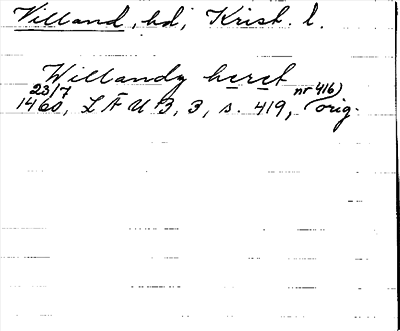 Villand, hd, Krist. l.
Willandz heret
23/7 nr 416)
1460, L Ä U B, 3, s. 419, orig.